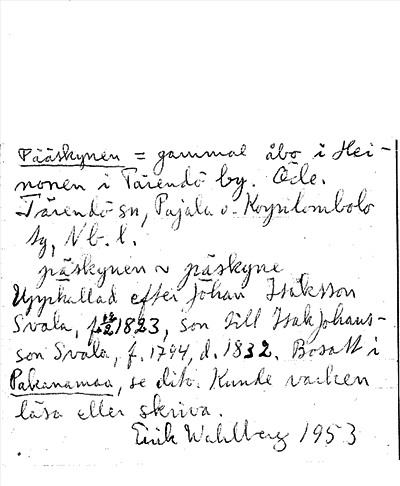 Pääskynen = gammal åbo i Hei-
nonen i Tärendö by. Öde.
Tärendö sn, Pajala o. Korpilombolo
tg, Nb. l.
pä̀skynen ~ pä̀skyne
Uppkallad efter Johan Isaksson
Svala, f. 1823, son till Isak Johans-
son Svala, f. 1794, d. 1832. Bosatt i
Pakanamaa, se dito. Kunde varken
läsa eller skriva.
Erik Wahlberg 1953